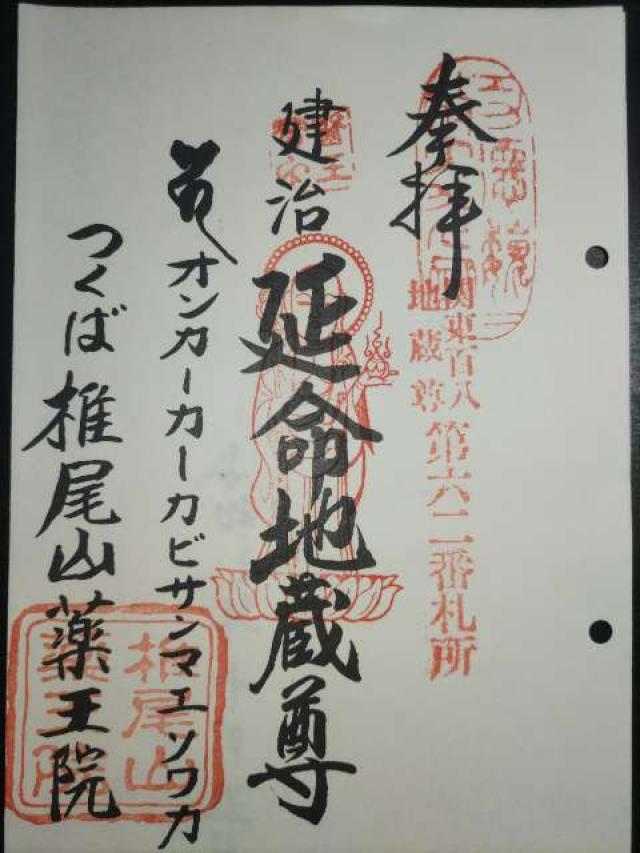 奉拝
関東百八
地蔵尊
第六二番札所
建治
延命地蔵尊
オンカーカーカビサンマエソワカ
つくば椎尾山薬王院
椎尾山
薬王院